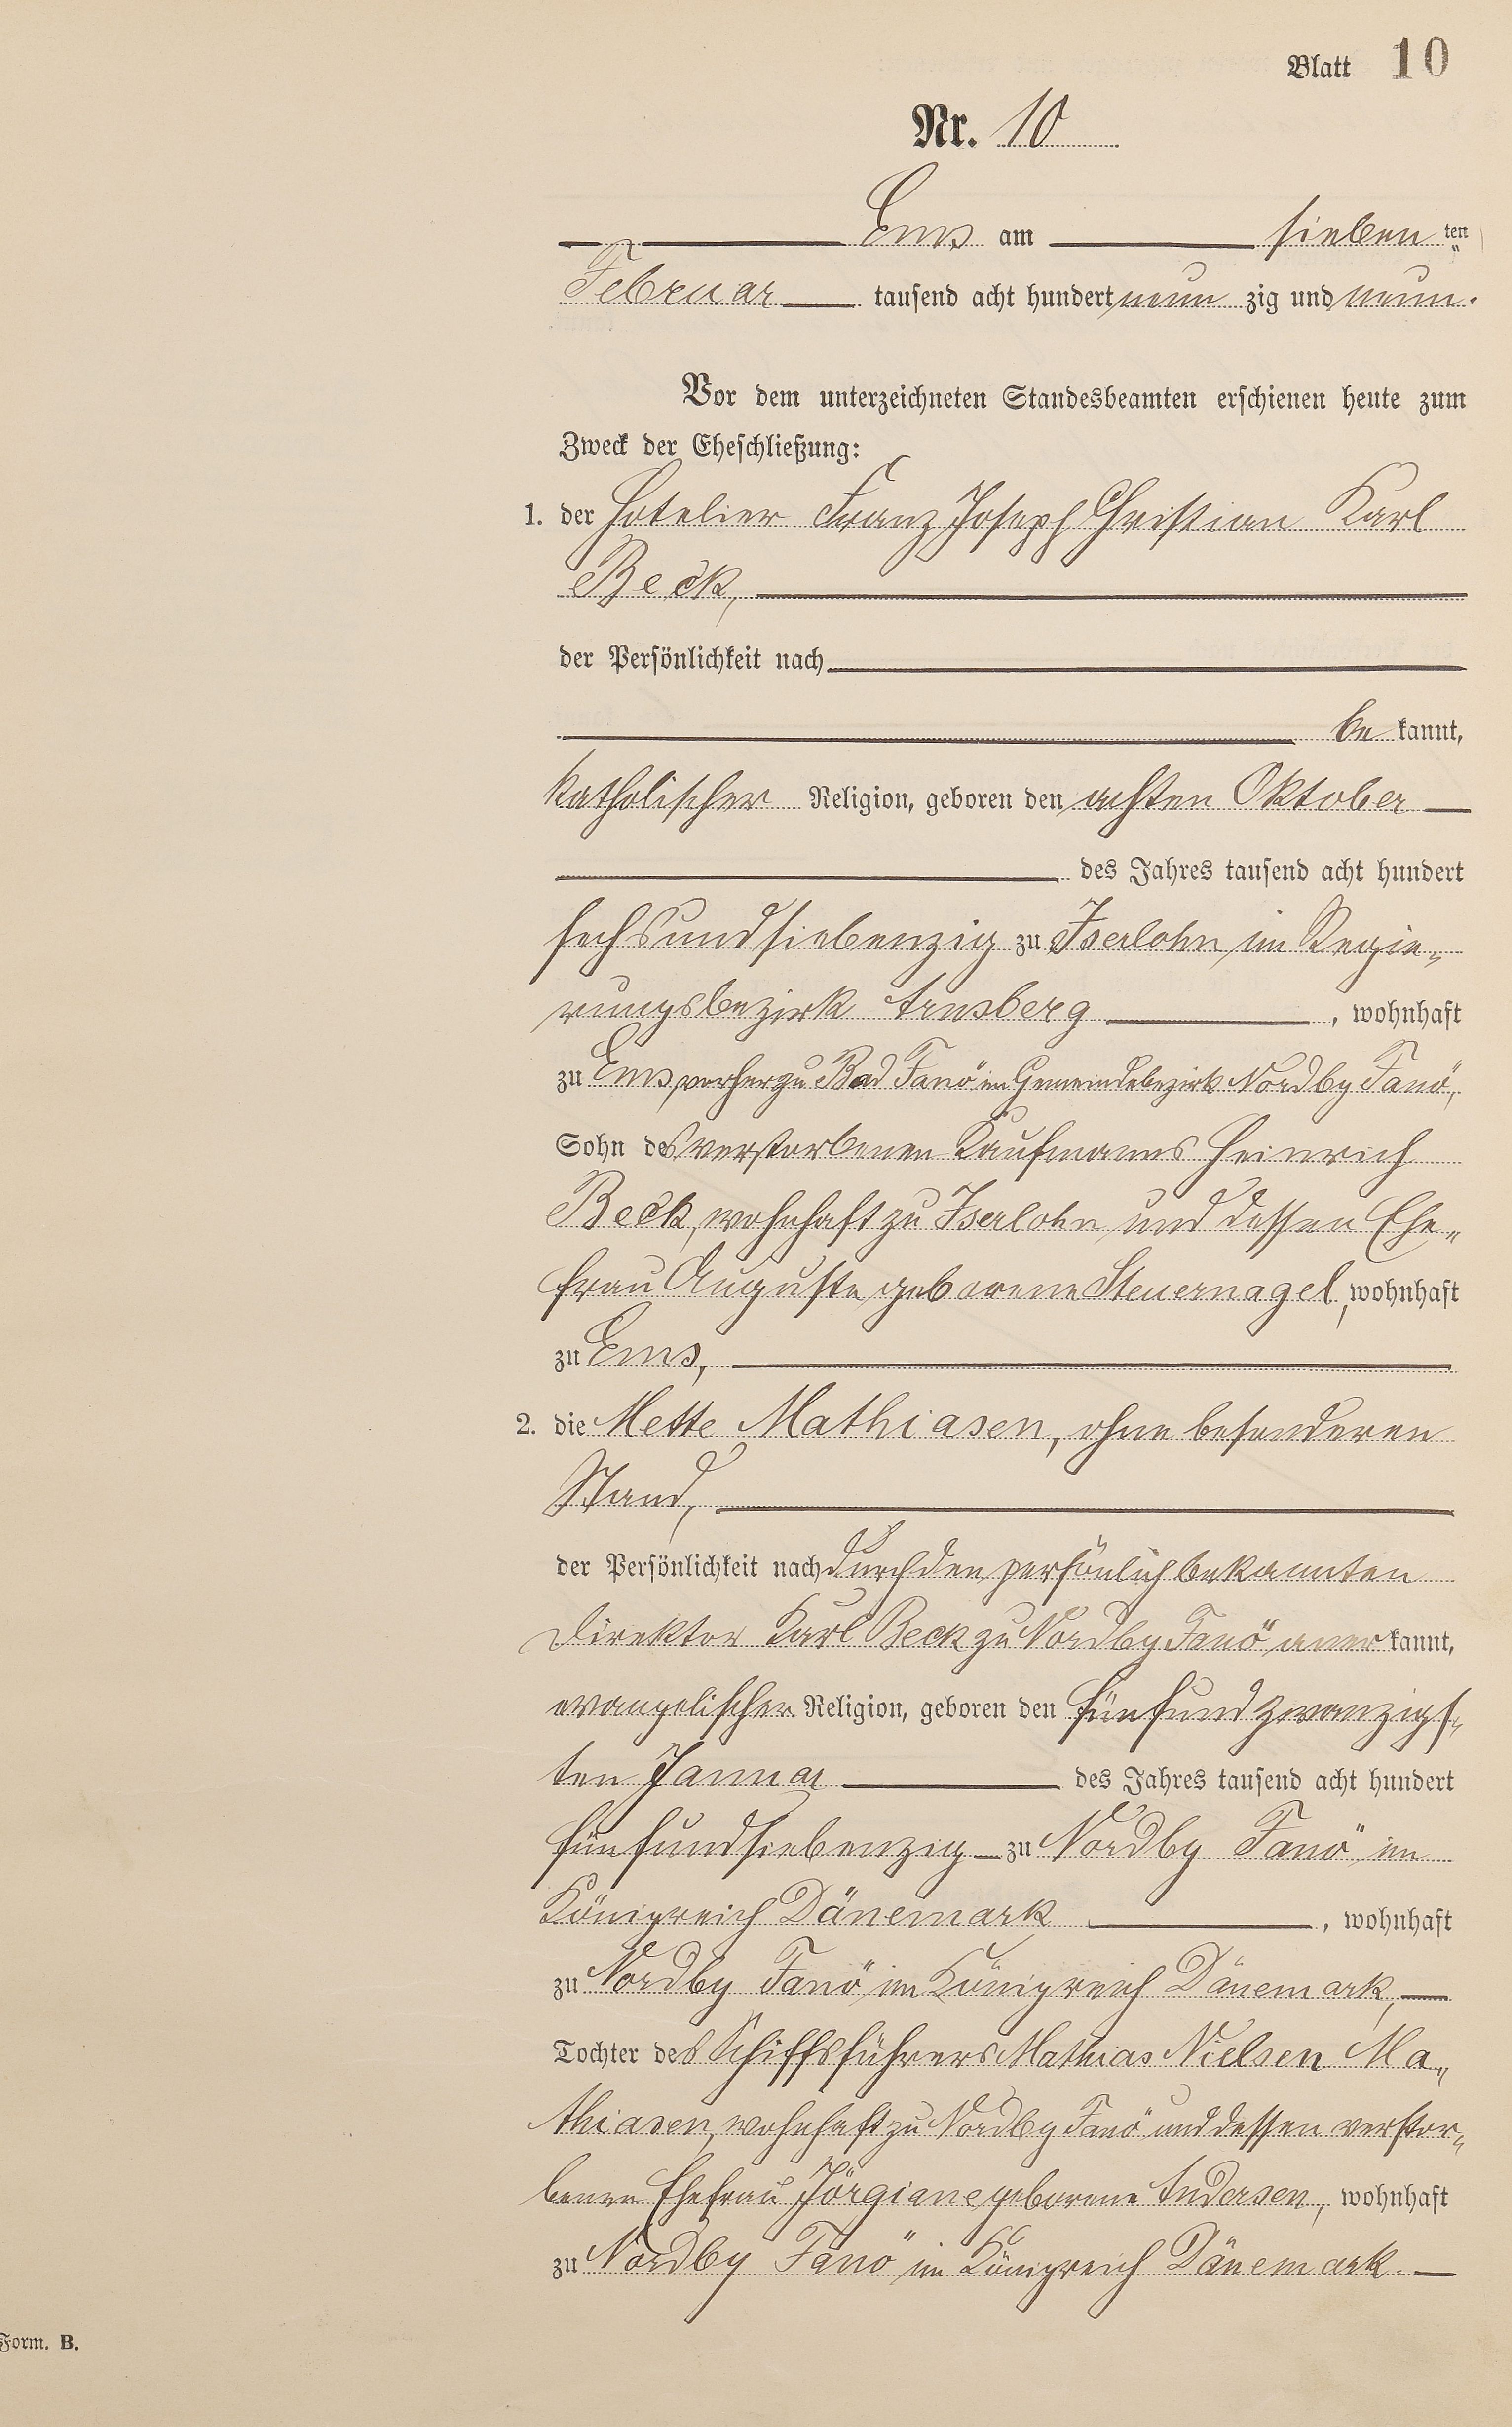 Blatt 10
Nr. 10
Ems am sieben ten
Februar tausend acht hundert neun zig und neun.
Vor dem unterzeichneten Standesbeamten erschienen heute zum
Zweck der Eheschließung:
1. der Hotelier Franz Joseph Christian Karl
Beck,
der Persönlichkeit nach
be kannt,
katholischer Religion, geboren den achten Oktober
des Jahres tausend acht hundert
sechsundsiebenzig zu Iserlohn im Regie-
rungsbezirk Arnsberg, wohnhaft
zu Ems, vorher zu Bad Fanö im Gemeindebezirk Nordby Fanö,
Sohn des verstorbenen Kaufmanns Heinrich
Beck, wohnhaft zu Iserlohn und dessen Ehe-
frau Auguste geborene Steuernagel, wohnhaft
zu Ems,
2. die Mette Mathiasen, ohne besonderen
Stand,
der Persönlichkeit nach durch den persönlich bekannten
Direktor Karl Beck zu Nordby Fanö aner kannt,
evangelischer Religion, geboren den fünfundzwanzigs-
ten Januar des Jahres tausend acht hundert
fünfundsiebenzig zu Nordby Fanö im
Königreich Dänemark, wohnhaft
zu Nordby Fanö im Königreich Dänemark,
Tochter des Schiffsführers Mathias Nielsen Ma-
thiasen, wohnhaft zu Nordby Fanö und dessen verstor-
benen Ehefrau Jörgiane geborene Andersen, wohnhaft
zu Nordby Fanö im Königreich Dänemark.
Form. B.